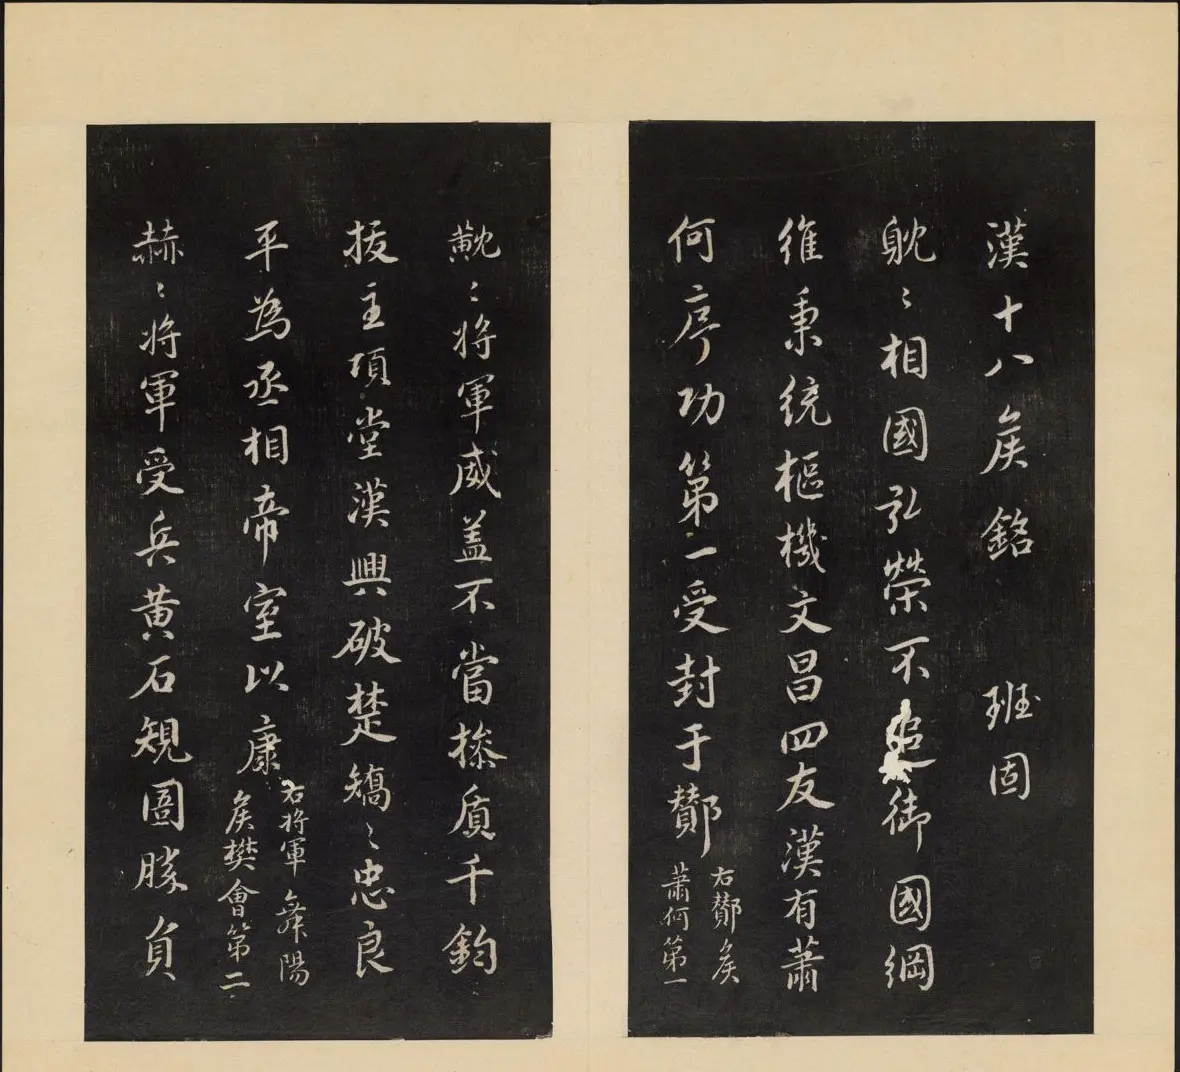 漢十八矦銘 班固
躭〻相國弘榮不追御國綱
維秉統樞機文昌四友漢有蕭
何序功第一受封于酇
右酇矦
蕭何第一
㽎〻將軍威盖不當摻盾千鈞
拔主項堂漢興破楚矯〻忠良
平為丞相帝室以康
右將軍舞陽
矦樊會第二
赫〻將軍受兵黃石規圖勝負